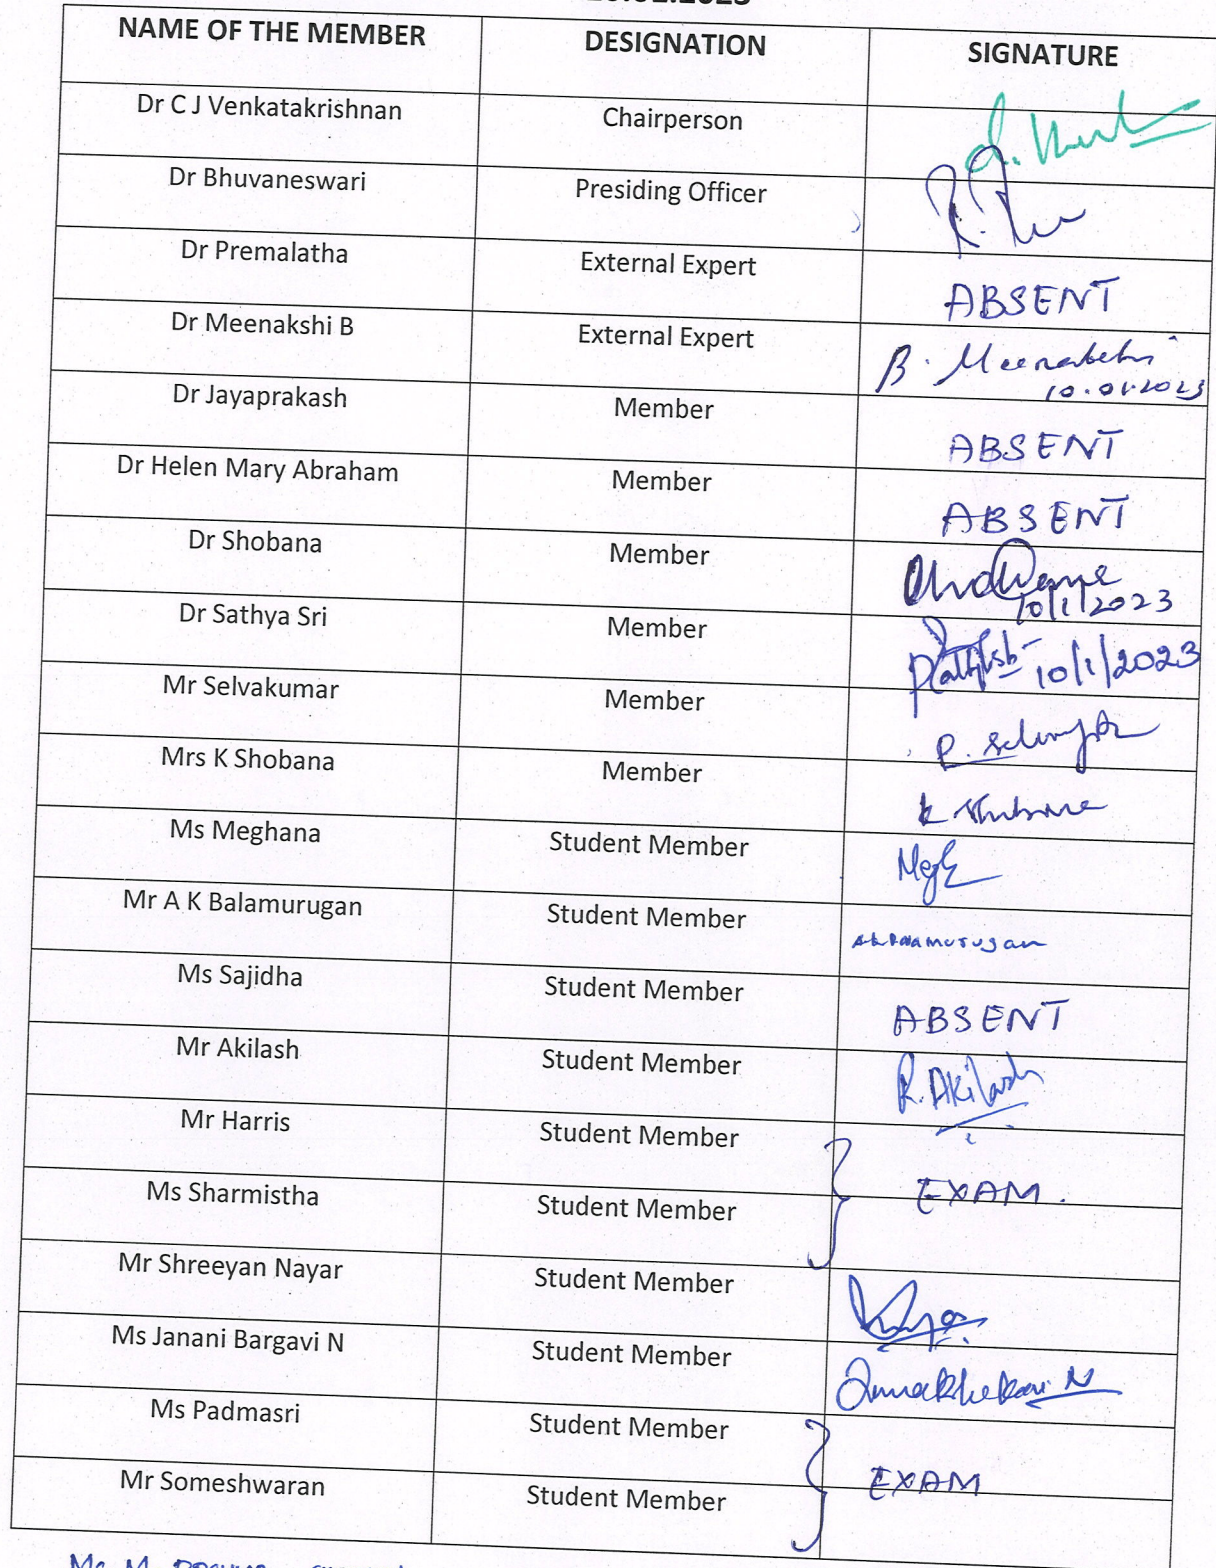 NAME OF THE MEMBER DESIGNATION SIGNATURE
Dr C J Venkatakrishnan Chairperson
Dr Bhuvaneswari Presiding Officer
Dr Premalatha External Expert ABSENT
Dr Meenakshi B External Expert B. Meenakshi
10.01.2023
Dr Jayaprakash Member ABSENT
Dr Helen Mary Abraham Member ABSENT
Dr Shobana Member
10/1/2023
Dr Sathya Sri Member 10/1/2023
Mr Selvakumar Member
Mrs K Shobana Member
Ms Meghana Student Member
Mr A K Balamurugan Student Member
Ms Sajidha Student Member ABSENT
Mr Akilash Student Member R. Akilash
Mr Harris Student Member
EXAM.
Ms Sharmistha Student Member
Mr Shreeyan Nayar Student Member
Ms Janani Bargavi N Student Member
Ms Padmasri Student Member
EXAM
Mr Someshwaran Student Member